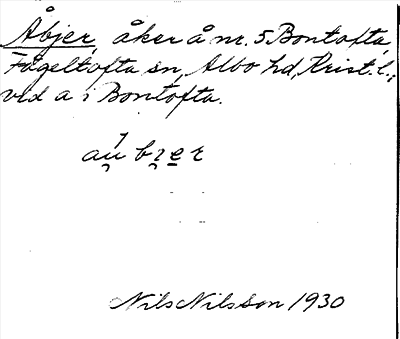 Åbjer, åker å nr. 5 Bontofta,
Fågeltofta sn, Albo hd, Krist. l.;
vid a i Bontofta.
au̯ bɿer
Nils Nilsson 1930